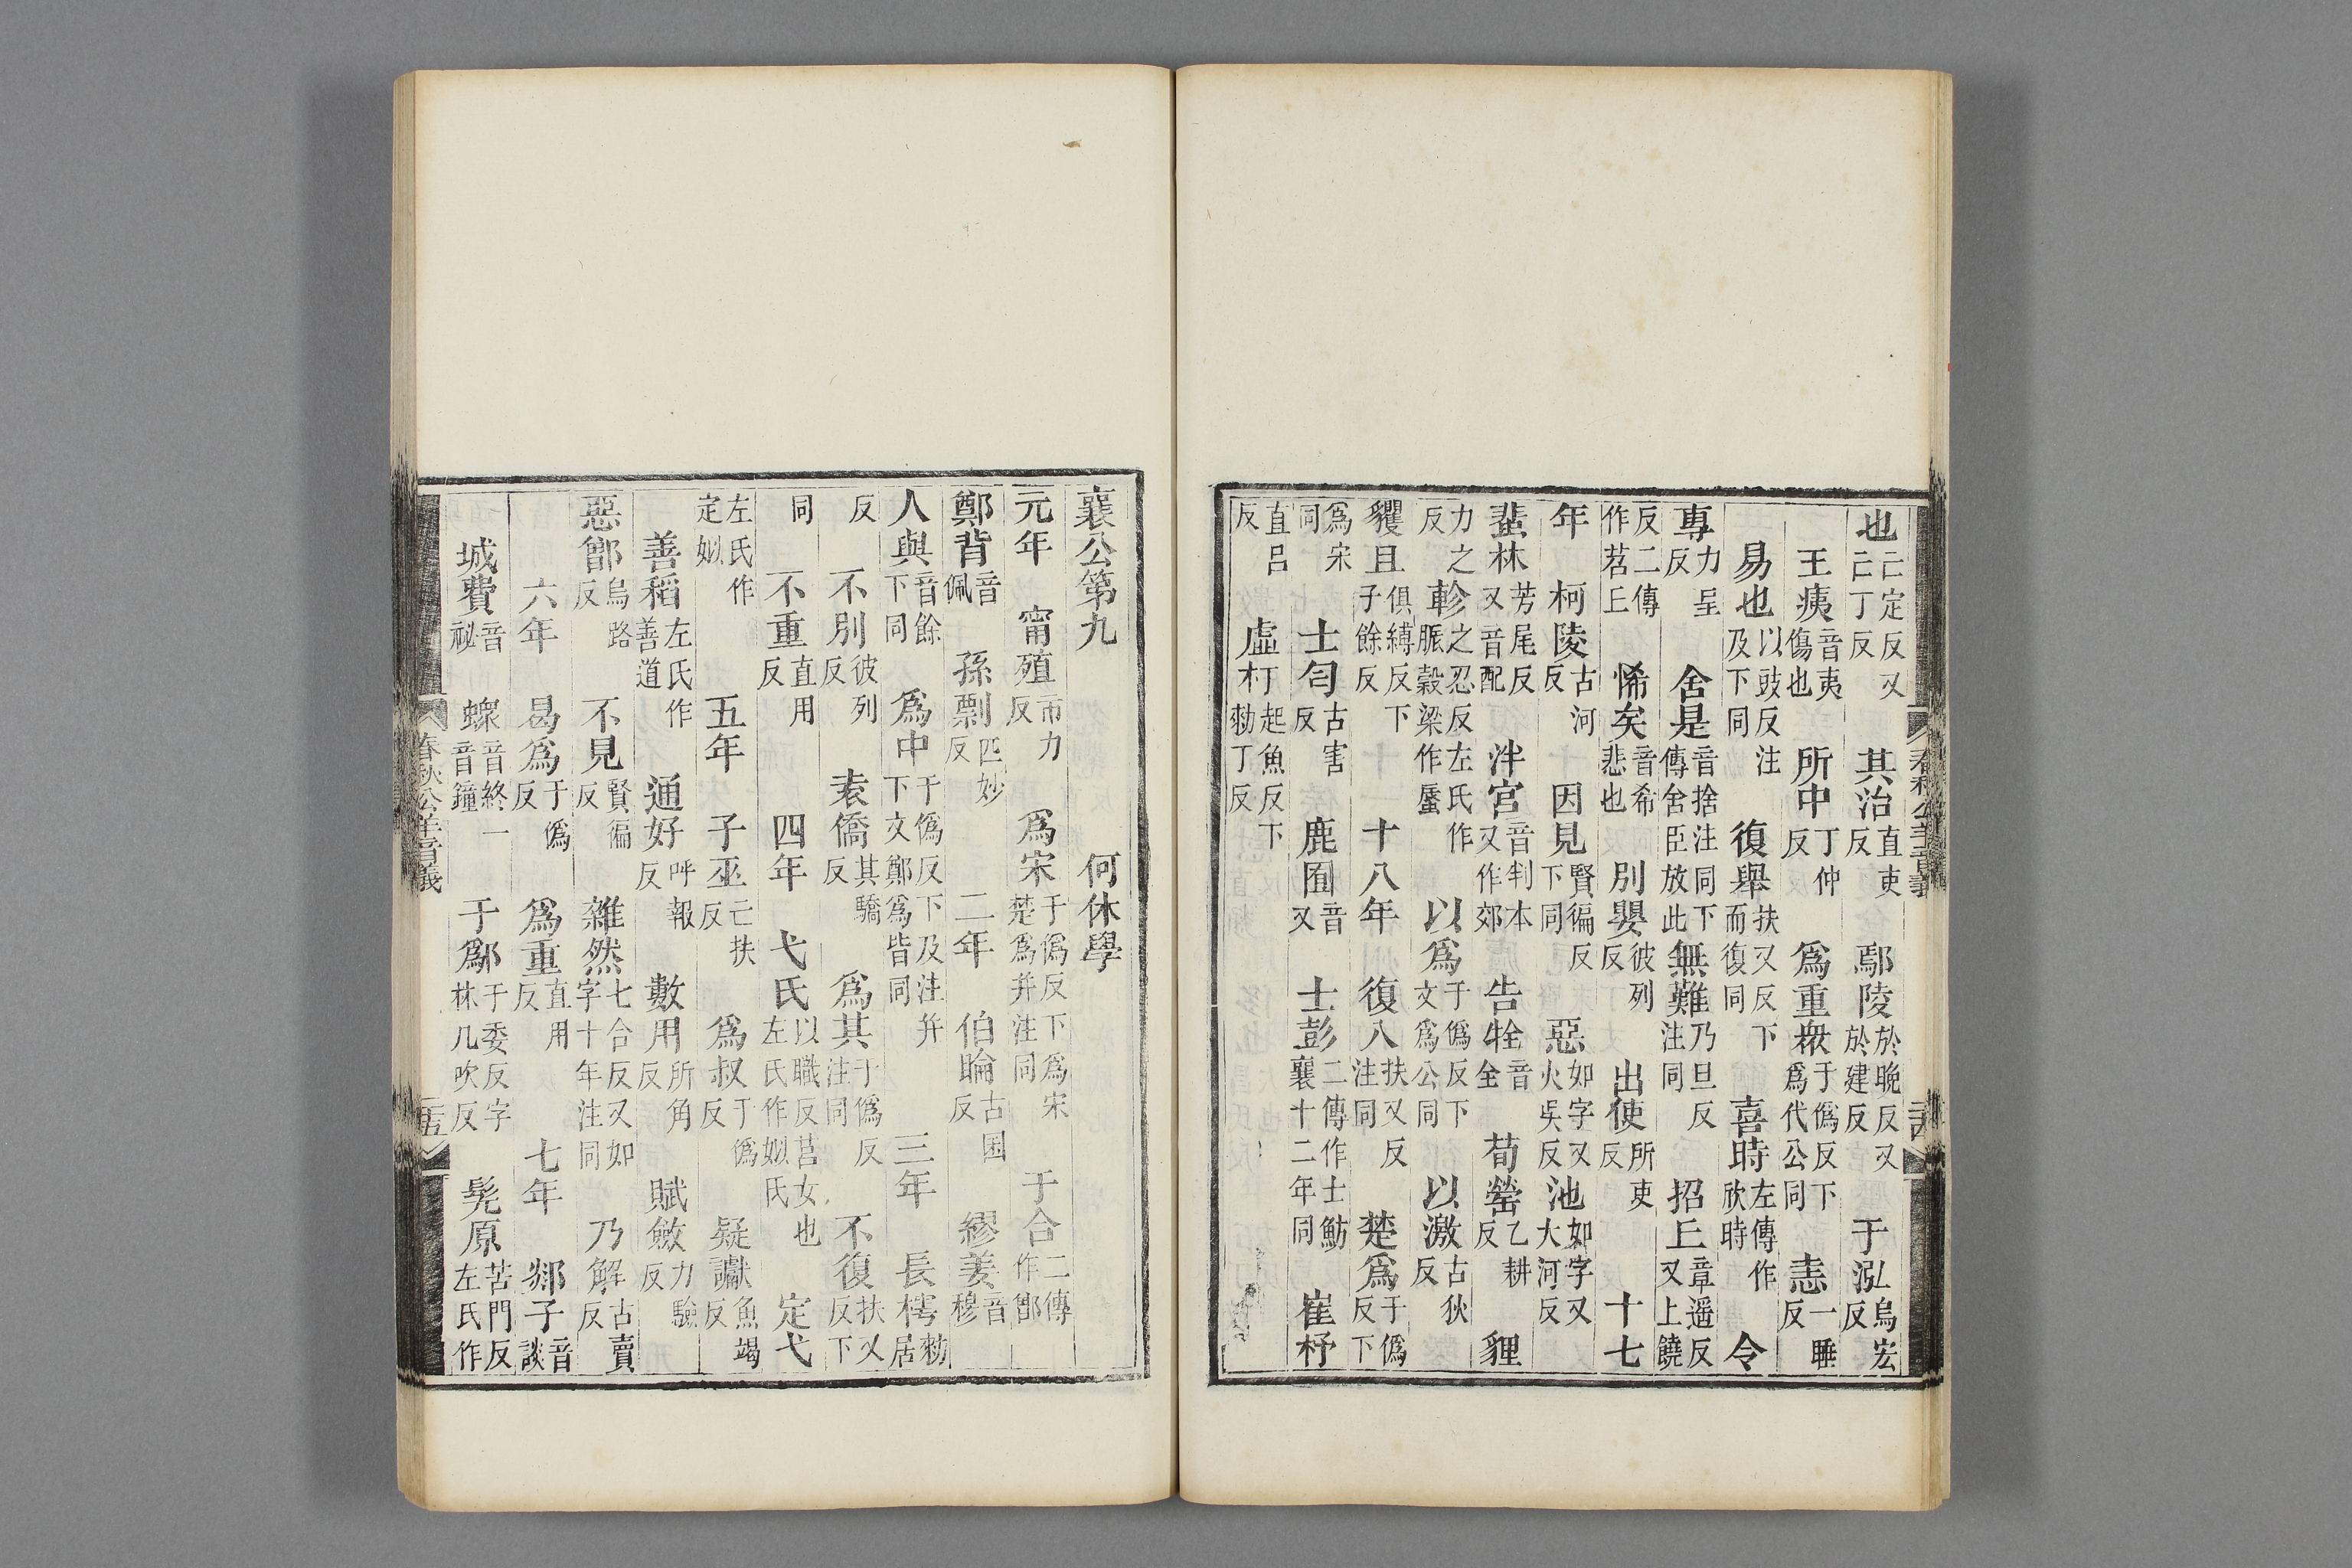 春秋公羊音義
也亡定反又亡丁反 其治直吏反 鄢陵於晚反又於建反 于泓烏宏反
王痍音夷傷也 所中丁仲反 爲重衆于僞反下爲代公同 恚一睡反
易也以豉反注及下同 復舉扶又反下而復同 喜時左傳作欣時 令
專力呈反 舍是音捨注同下傳舍臣放此 無難乃旦反注同 招丘章遥反又上饒
反二傳作苕丘 悕矣音希悲也 別嬰彼列反 出使所吏反 十七
年 柯陵古河反 因見賢徧反下同 惡如字又火吳反 池如字又大河反
蜚林芳尾反又音配 泮宮音判本又作郊 告牷音全 荀罃乙耕反 貍
力之反 軫之忍反左氏作脤穀梁作蜃 以爲于僞反下文爲公同 以激古狄反
貜且俱縛反下子餘反 十八年 復入扶又反注同 楚爲于僞反下
爲宋同 士匄古害反 鹿囿音又 士彭二傳作士魴襄十二年同 崔杼
直呂反 虛朾起魚反下勑丁反
襄公第九 何休學
元年 甯殖市力反 爲宋于僞反下爲宋楚爲并注同 于合二傳作鄫
鄭背音佩 孫剽匹妙反 二年 伯睔古囯反 繆姜音穆
人與音餘下同 爲中于僞反下及注并下文鄭爲皆同 三年 長樗勑居
反 不別彼列反 袁僑其驕反 爲其于僞反注同 不復扶又反下
同 不重直用反 四年 弋氏以職反莒女也左氏作姒氏 定弋
左氏作定姒 五年 子巫亡扶反 爲叔于僞反 疑讞魚竭反
善稻左氏作善道 通好呼報反 數用所角反 賦斂力驗反
惡鄫烏路反 不見賢徧反 雜然七合反又如字十年注同 乃解古賣反
六年 曷爲于僞反 爲重直用反 七年 郯子音談
城費音祕 𧑄音終一音鐘 于鄬于委反字林几吹反 髡原苦門反左氏作
春秋公羊音義